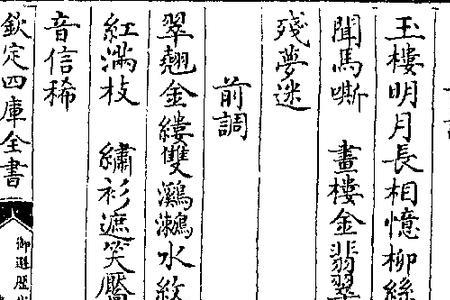 玉樓明月長相憶柳絲
聞馬嘶　畫樓金翡翠
殘夢迷
前調
翠翹金縷雙鸂鶒水紋
紅滿枝　繡衫遮笑靨
音信稀
欽定四庫全書
御選歷